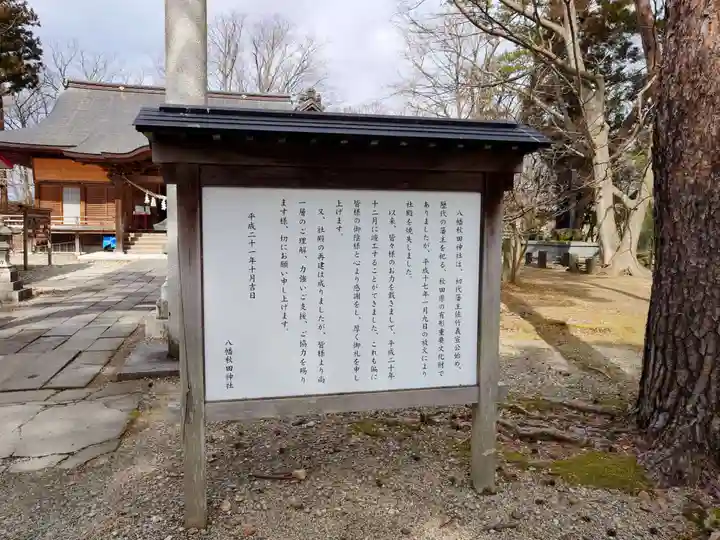 八幡秋田神社は、初代藩主佐竹義宣公始め、
歴代の藩主を祀る、秋田県の有形重要文化財で
ありましたが、平成十七年一月九日の放火により
社殿を焼失しました。
以来、皆々様のお力を戴きまして、平成二十年
十二月に竣工することができました。これも偏に
皆様の御陰様と心より感謝をし、厚く御礼を申し
上げます。
又、社殿の再建は成りましたが、皆様より尚
一層のご理解、力強いご支援、ご協力を賜り
ます様、切にお願い申し上げます。
平成二十一年十月吉日
八幡秋田神社